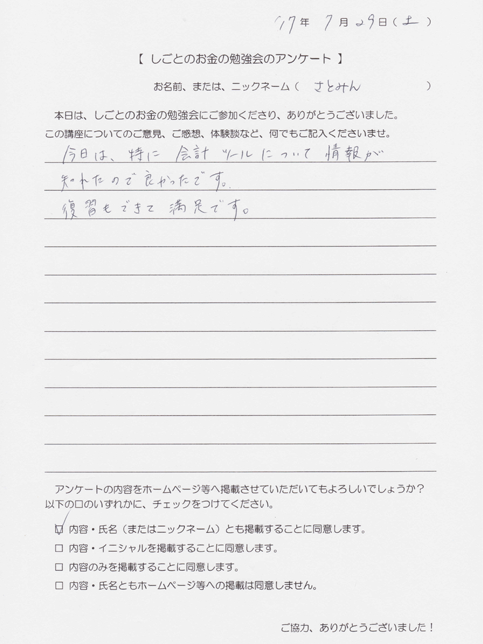 '17年 7月29日(土)
【 しごとのお金の勉強会のアンケート 】
お名前、または、ニックネーム( さとみん )
本日は、しごとのお金の勉強会にご参加くださり、ありがとうございました。
この講座についてのご意見、ご感想、体験談など、何でもご記入くださいませ。
今日は、特に 会計ツールについて 情報が
知れたので良かったです。
復習もできて 満足です。
アンケートの内容をホームページ等へ掲載させていただいてもよろしいでしょうか?
以下の口のいずれかに、チェックをつけてください。
☑ 内容・氏名(またはニックネーム)とも掲載することに同意します。
□ 内容・イニシャルを掲載することに同意します。
□ 内容のみを掲載することに同意します。
□ 内容・氏名ともホームページ等への掲載は同意しません。
ご協力、ありがとうございました!